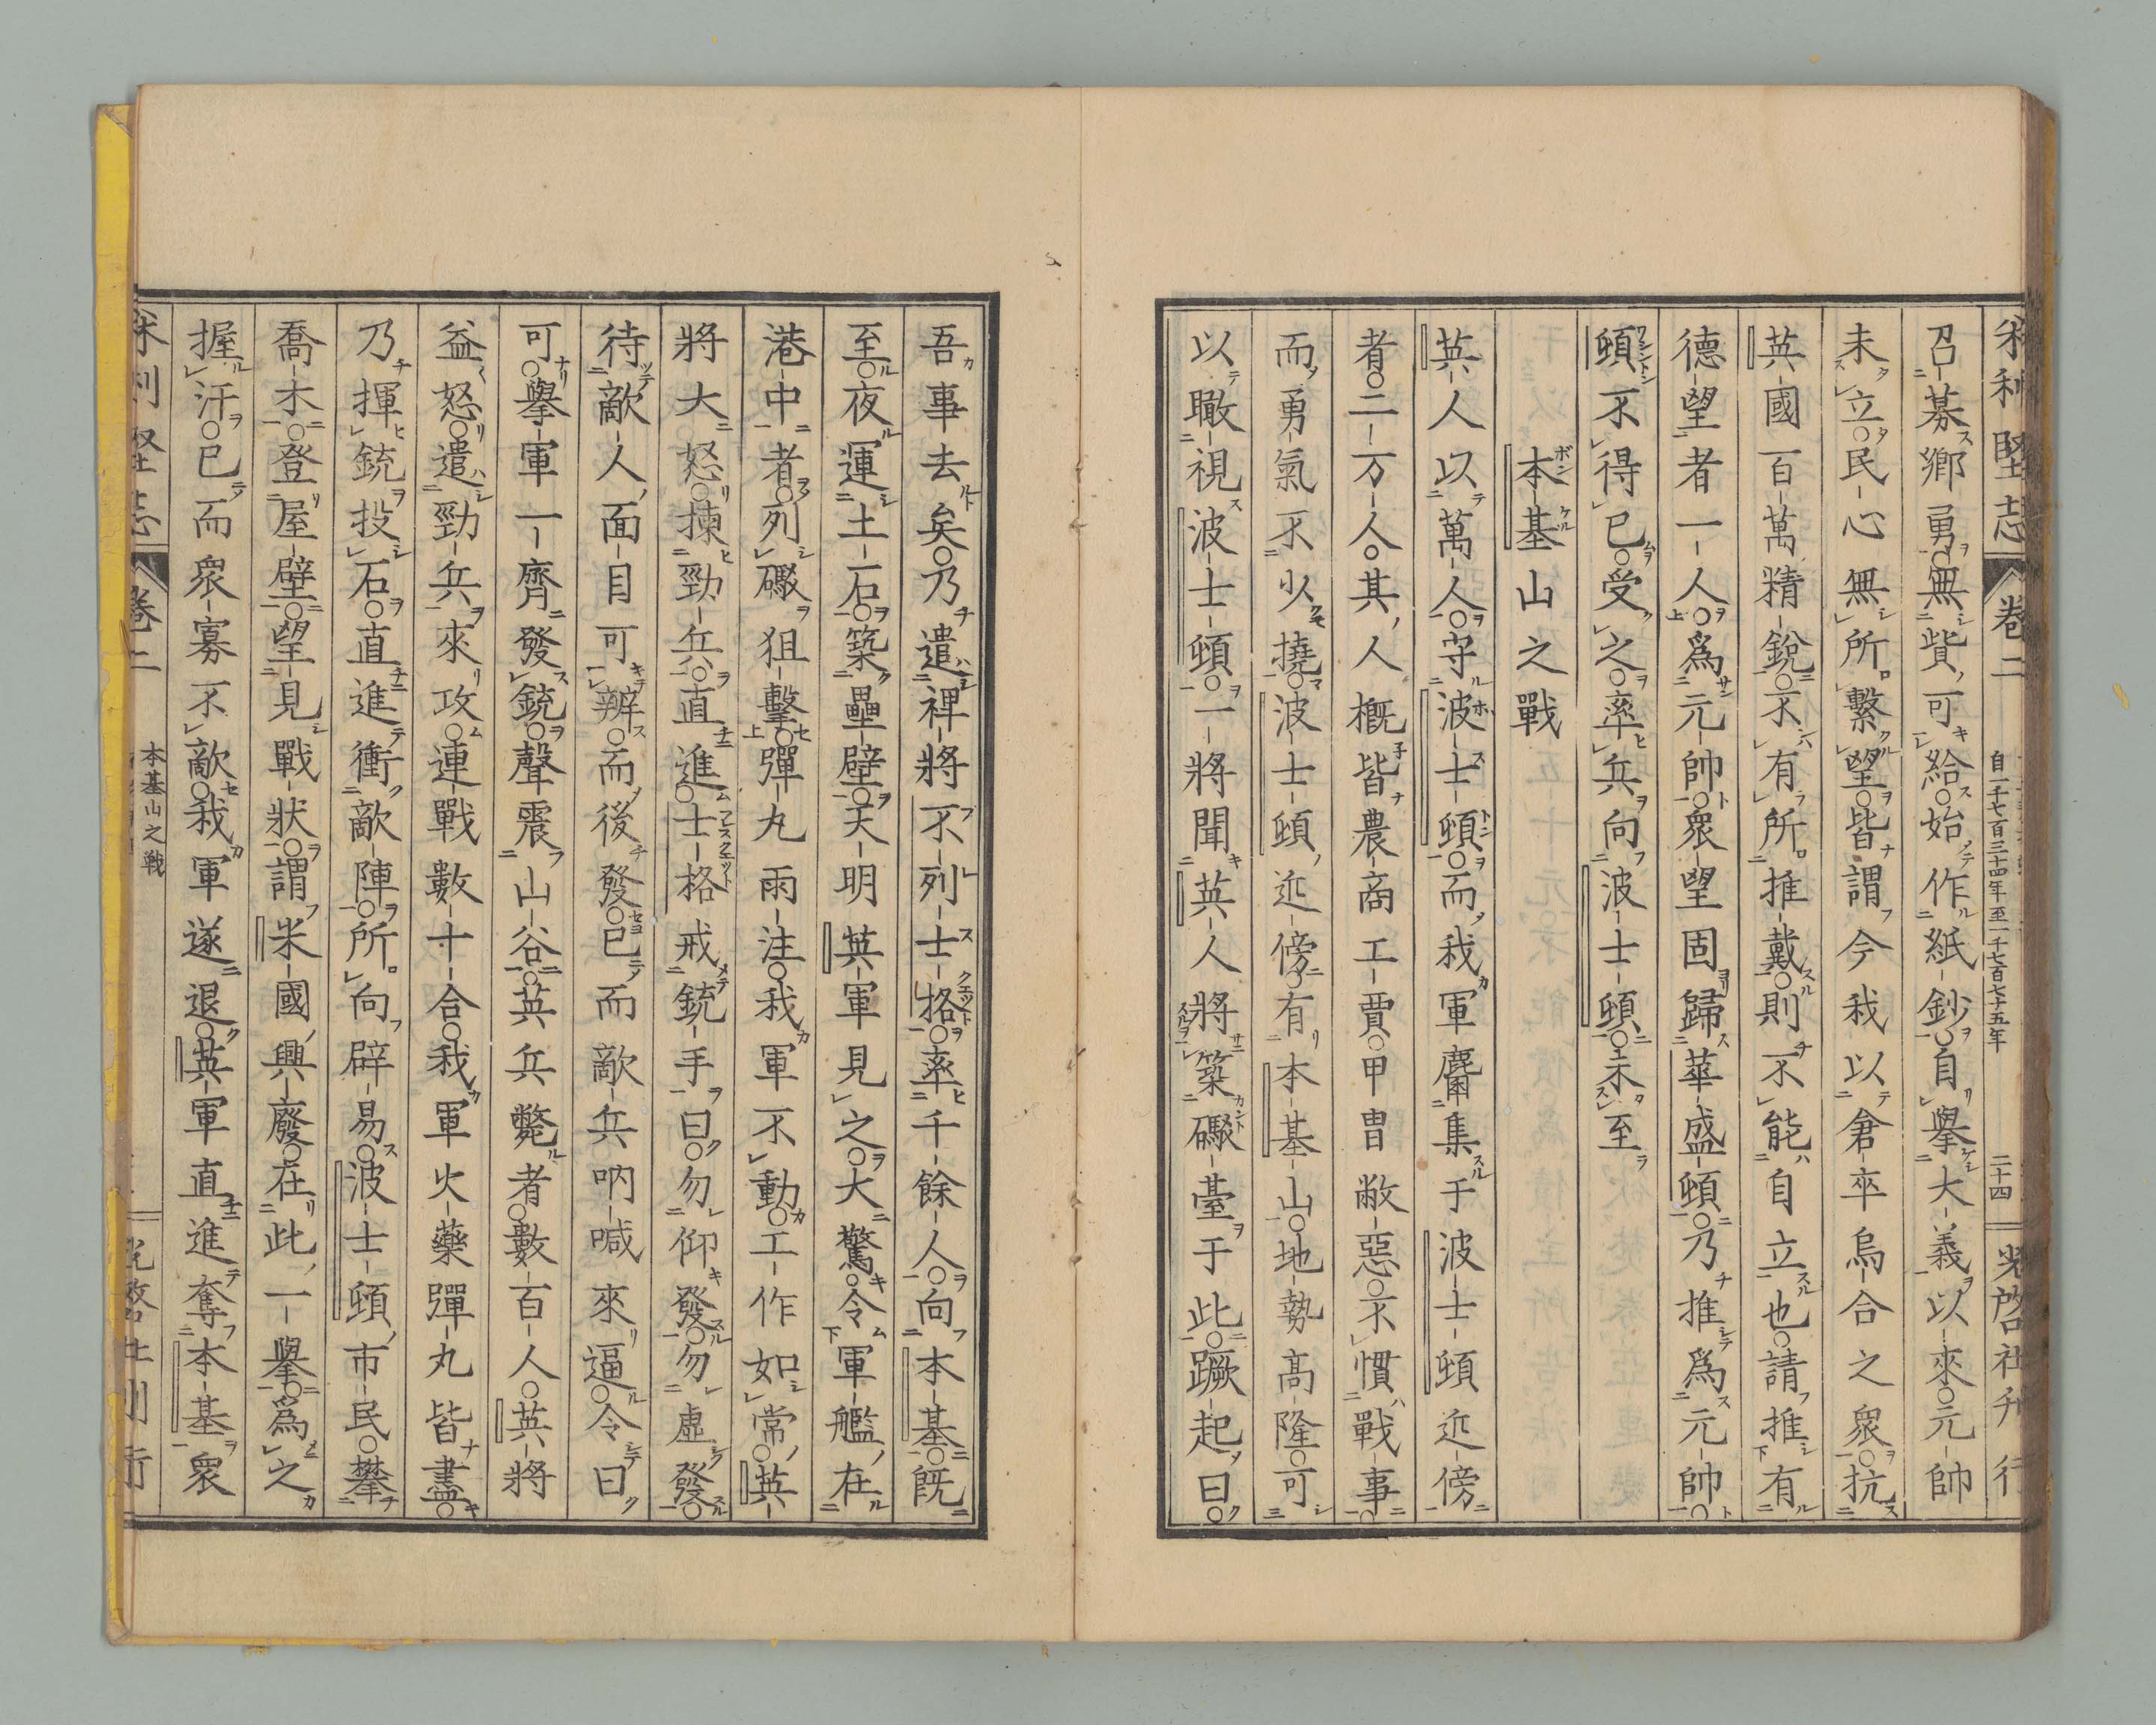 米利堅志 卷二 自一千七百三十四年至一千七百七十五年 二十四 光啓社刋行
召募鄉勇。無貲可給。始作紙鈔。自舉大義以來。元帥
未立。民心無所繫望。皆謂今我以倉卒烏合之衆。抗
英國百萬精銳。不有所推戴。則不能自立也。請推有
德望者一人。爲元帥。衆望固歸華盛頓。乃推爲元帥。
頓不得已。受之。率兵向波士頓。未至
本基山之戰
英人以萬人。守波士頓。而我軍麕集于波士頓近傍
者。二万人。其人概皆農商工賈。甲冑敝惡。不慣戰事。
而勇氣不少撓。波士頓近傍。有本基山。地勢高隆。可
以瞰視波士頓。一將聞英人將築礟臺于此。蹶起曰。
吾事去矣。乃遣裨將不列士格。率千餘人。向本基。既
至。夜運土石。築壘壁。天明英軍見之。大驚。令軍艦在
港中者。列礟狙擊。彈丸雨注。我軍不動。工作如常。英
將大怒。揀勁兵。直進。士格戒銃手曰。勿仰發。勿虛發。
待敵人面目可辨。而後發。已而敵兵吶喊來逼。令曰
可。舉軍一齊發銃。聲震山谷。英兵斃者。數百人。英將
益怒。遣勁兵來攻。連戰數十合。我軍火藥彈丸皆盡。
乃揮銃投石。直進衝敵陣。所向辟易。波士頓市民。攀
喬木。登屋壁。望見戰狀。謂米國興廢。在此一舉。爲之
握汗。已而衆寡不敵。我軍遂退。英軍直進奪本基衆
米利堅志 卷二 本基山之戰 光啓社刋行